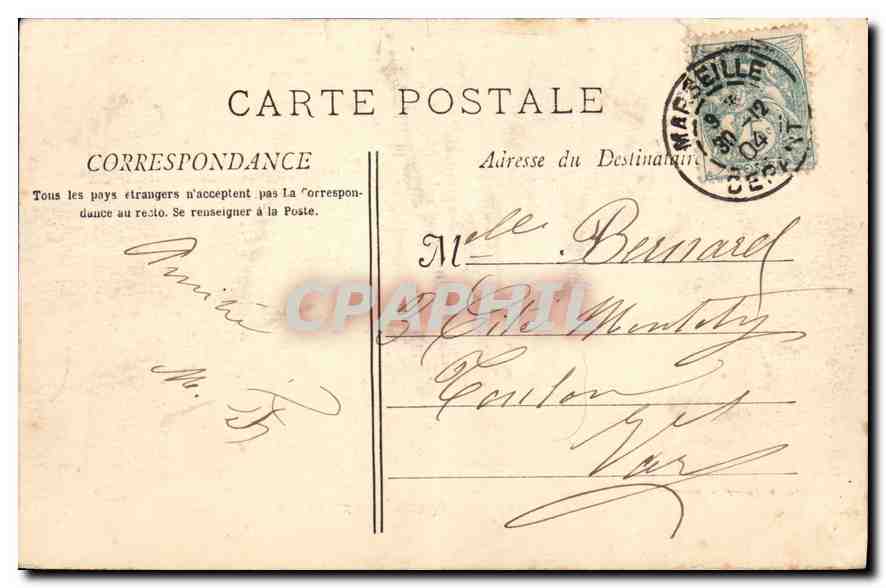 CARTE POSTALE
CORRESPONDANCE
Tous les pays étrangers n'acceptent pas La Correspon-
dance au recto. Se renseigner à la Poste.
Adresse du Destinataire
MARSEILLE
9
30 -12
04
DEPART
Amitié
M.
Melle Bernard
Cité Montéty
Toulon
Var
CPAPHIL